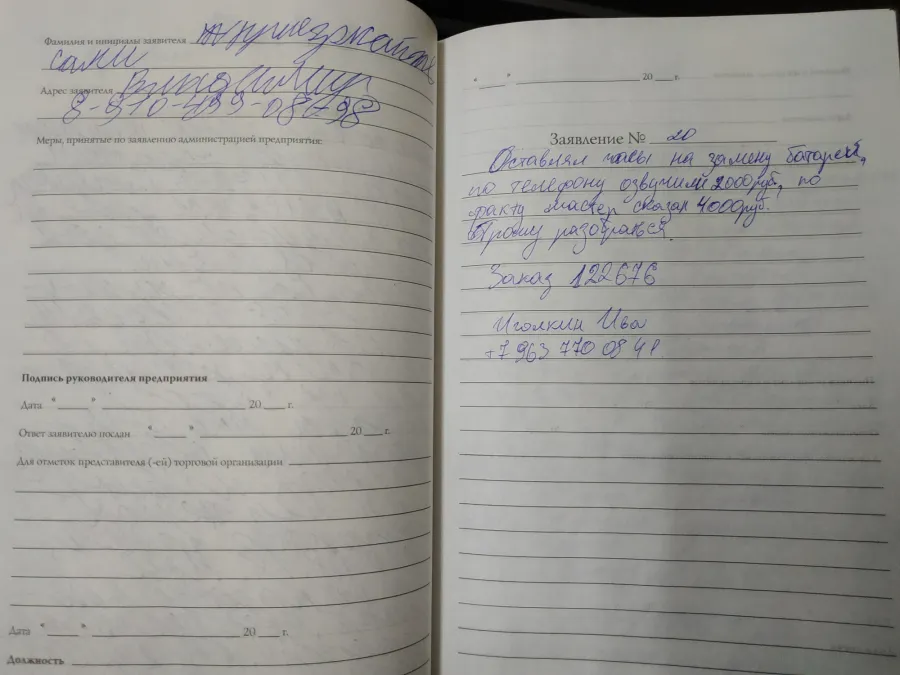 Фамилия и инициалы заявителя приезжайте
сами
Адрес заявителя
8-910-499-08-98
Меры, принятые по заявлению администрацией предприятия:
Подпись руководителя предприятия
Дата "___" 20___г.
Ответ заявителю послан "___" 20___г.
Для отметок представителя (-ей) торговой организации
Дата "___" 20___г.
Должность
"___" 20___г.
Заявление № 20
Оставлял часы на замену батарей,
по телефону озвучили 2000руб, по
факту мастер сказал 4000руб.
Прошу разобраться.
Заказ 122676
Иголкин Ива
+7 963 770 08 41